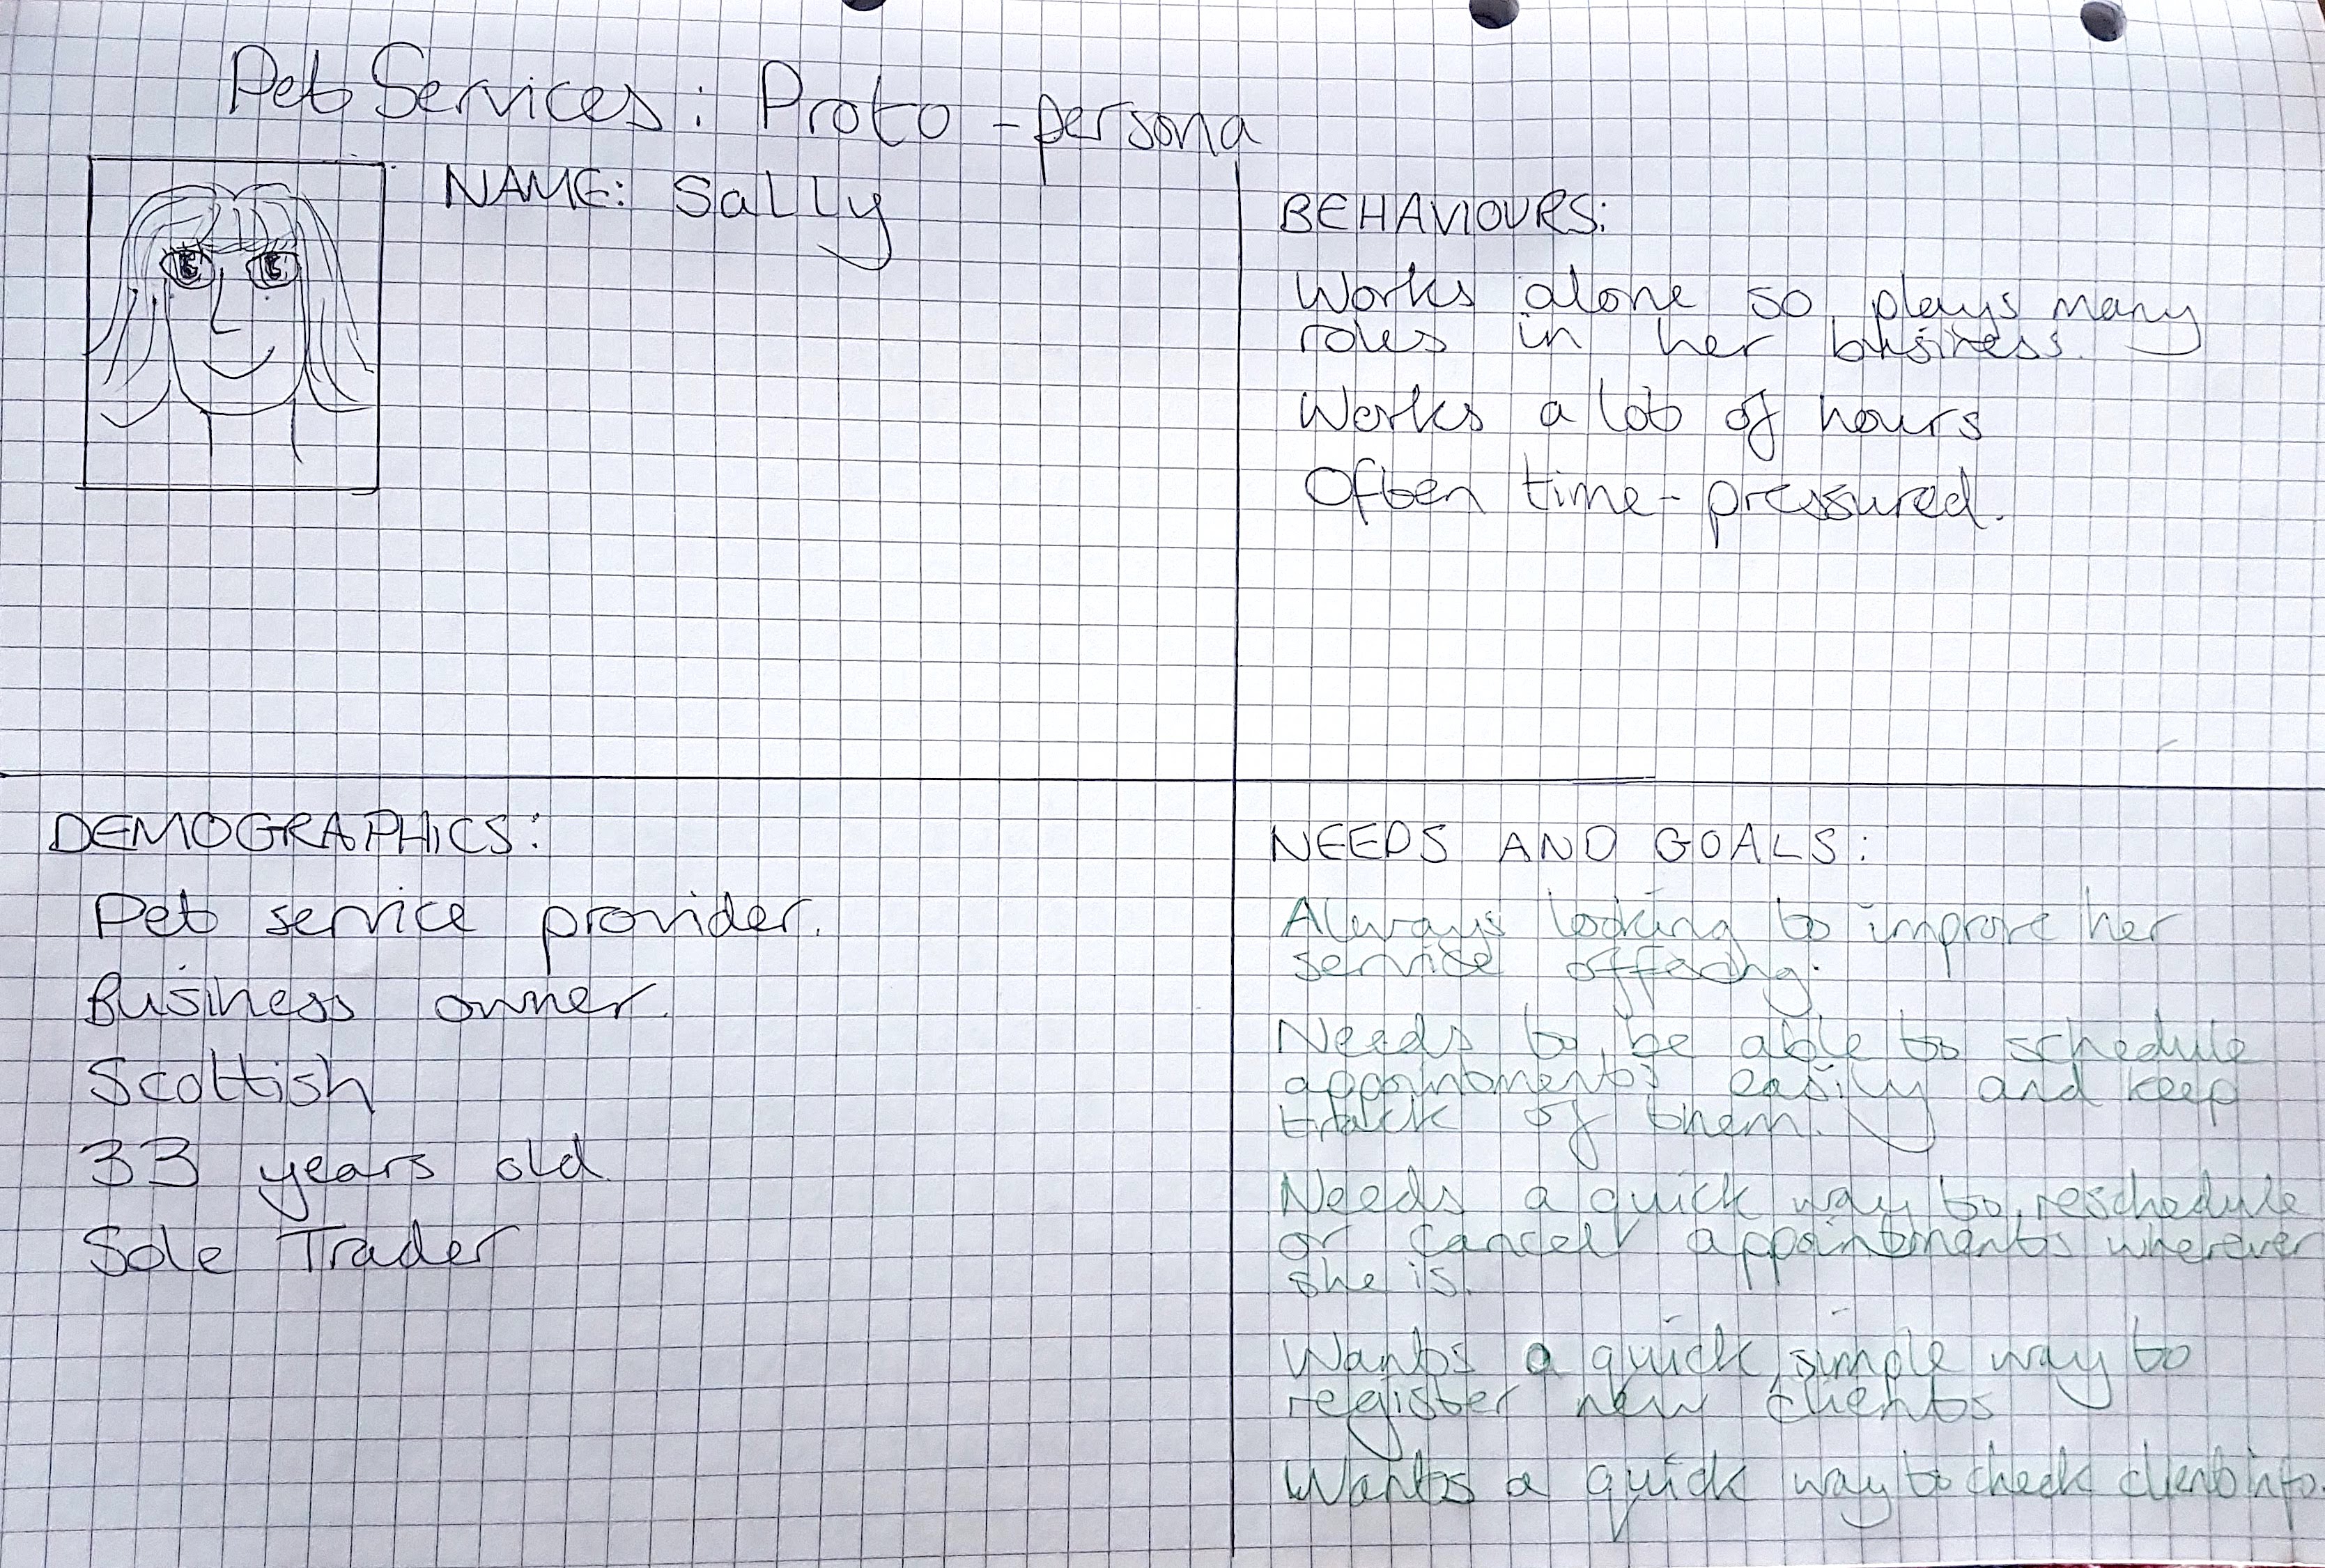 Pet Services: Proto-persona
NAME: Sally
BEHAVIOURS:
Works alone so plays many
roles in her business.
Works a lot of hours
Often time-pressured.
DEMOGRAPHICS:
Pet service provider.
Business owner.
Scottish
33 years old
Sole Trader
NEEDS AND GOALS:
Always looking to improve her
service offering.
Needs to be able to schedule
appointments easily and keep
track of them.
Needs a quick way to reschedule
or cancel appointments wherever
she is.
Wants a quick, simple way to
register new clients
Wants a quick way to check client info.